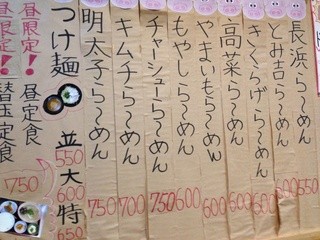 長浜ら〜めん 550
とみ吉ら〜めん 600
きくらげら〜めん 600
高菜ら〜めん 600
やまいもら〜めん 600
もやしら〜めん 600
チャーシューら〜めん 750
キムチら〜めん 700
明太子ら〜めん 750
つけ麺 並550 大600 特650
昼限定！昼定食
昼限定！替玉定食
750